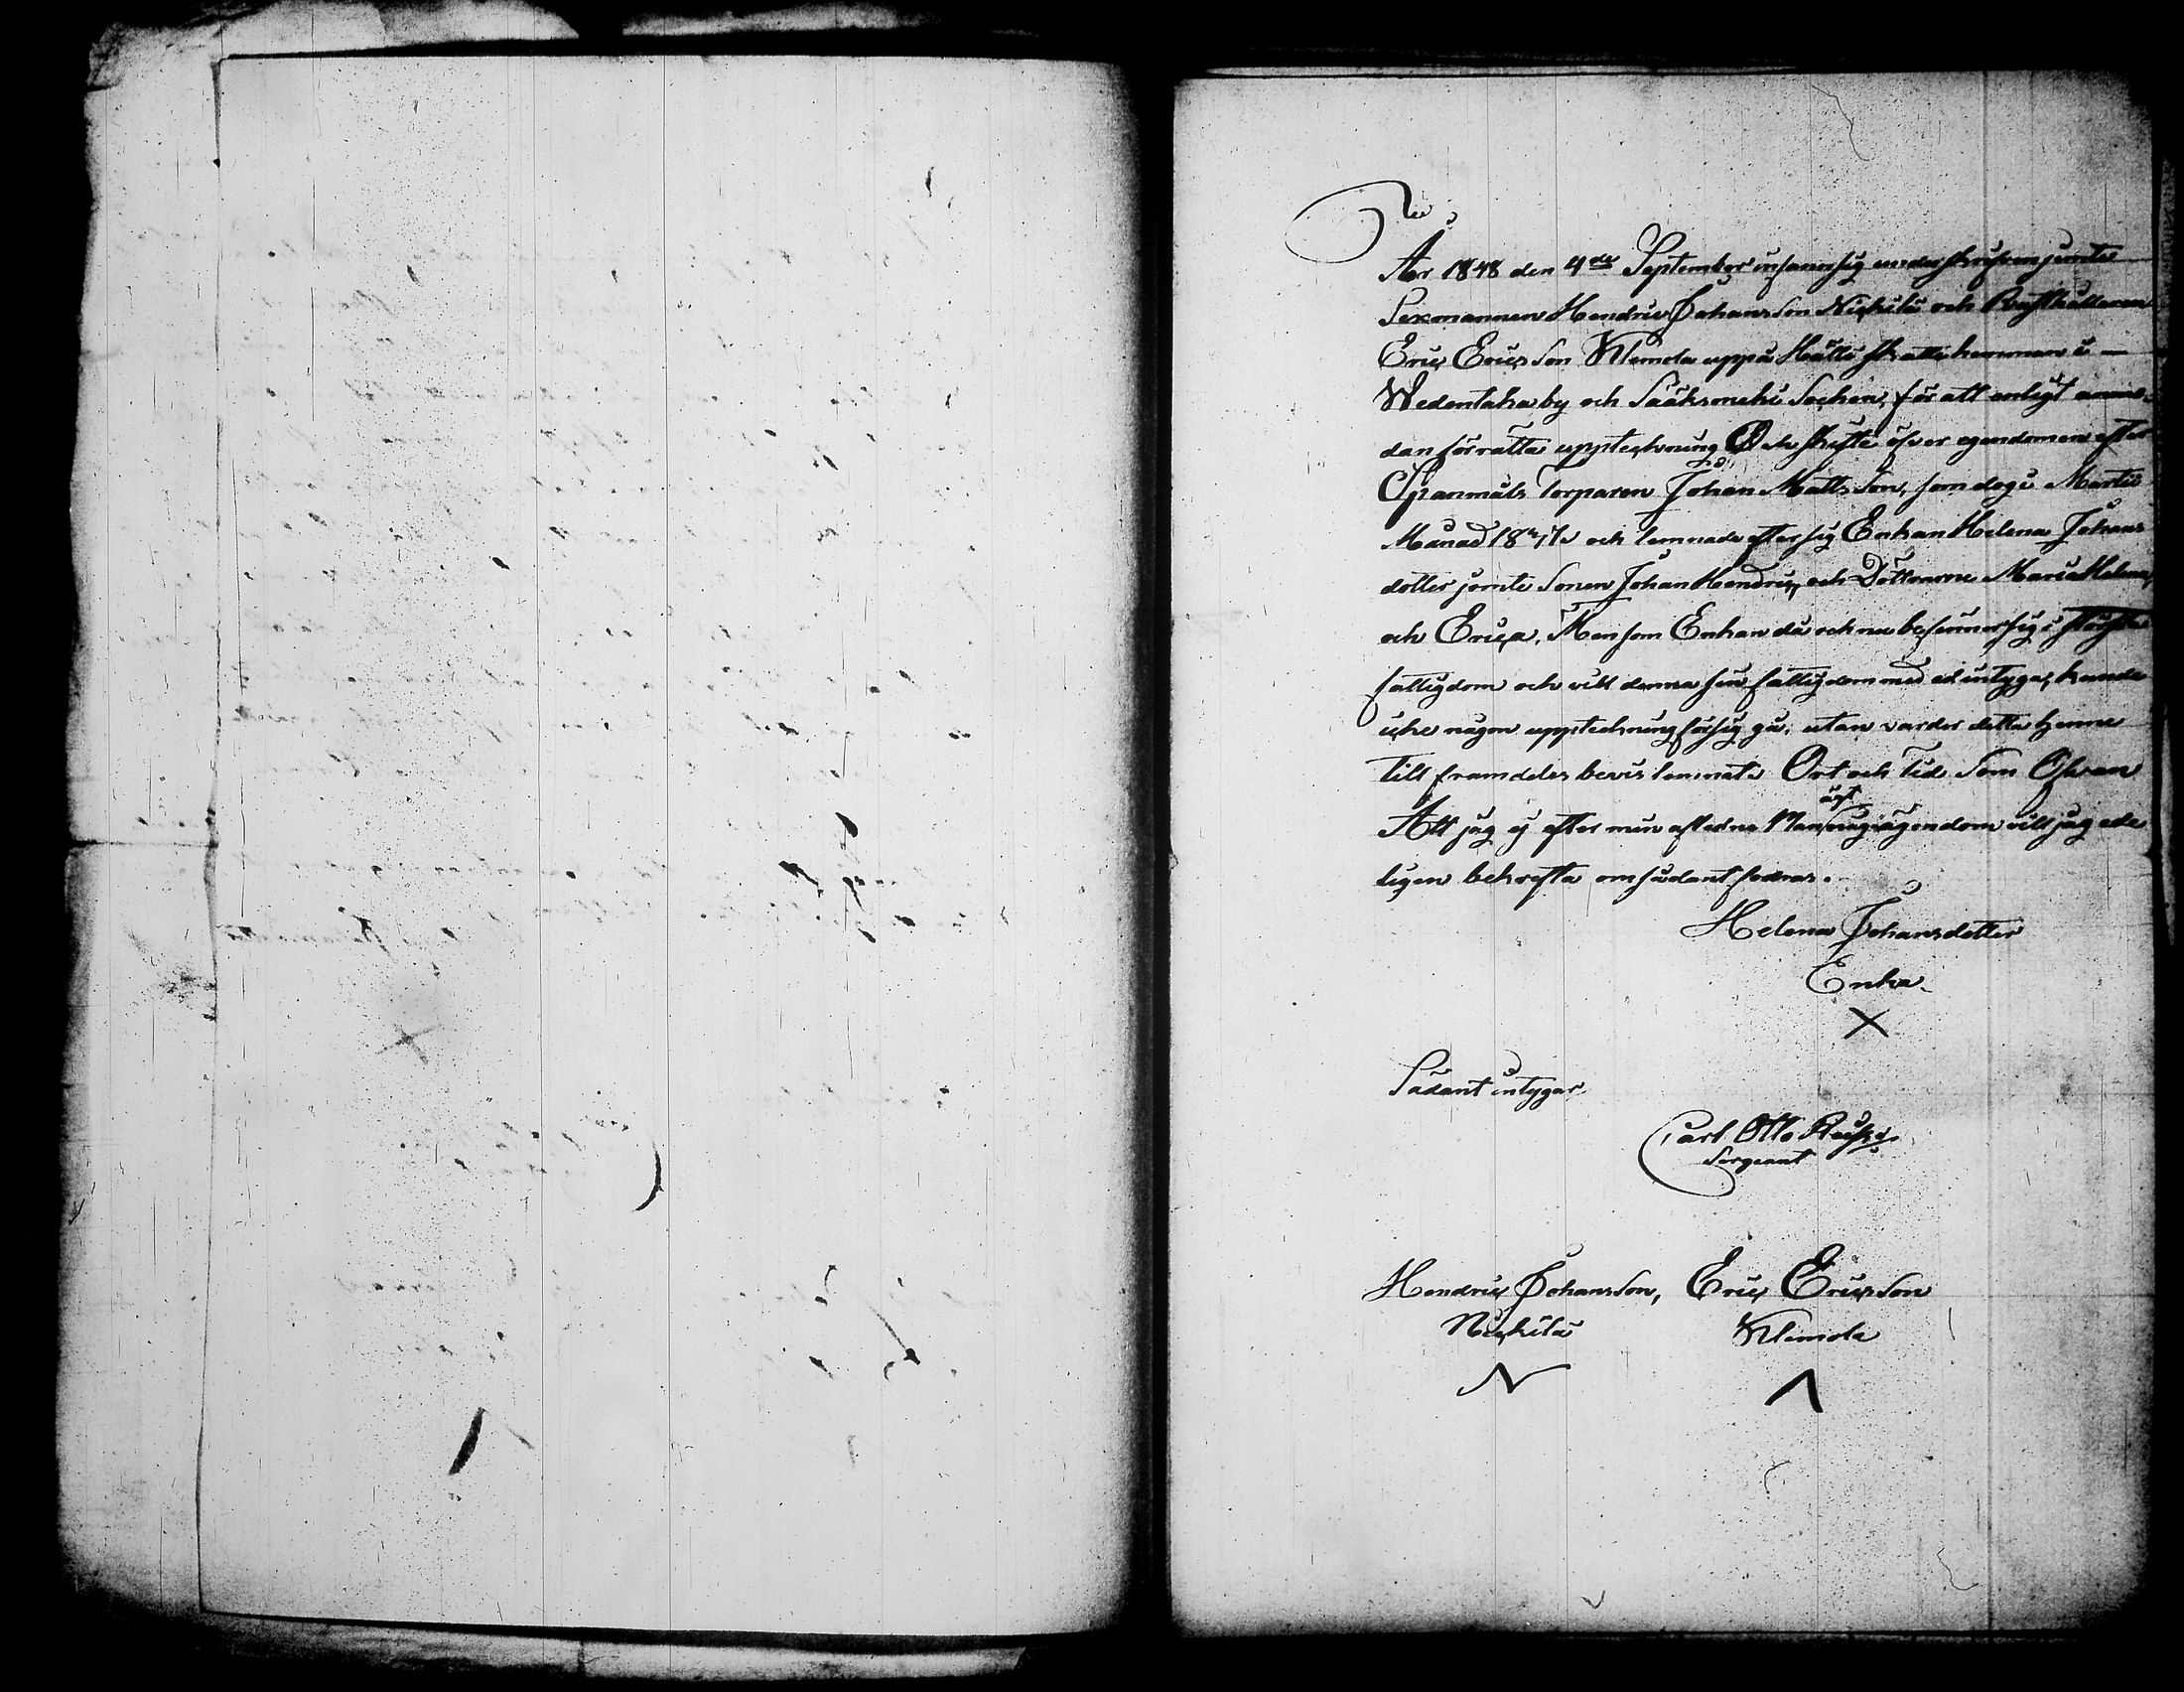 År 1848 den 4de September infann sig underskrifven jemte
Sexmannen Hendric Johansson Nickilä och Rusthållaren
Eric Ericsson Klemola uppå Hätti skattehemman i —
Wedentaka by och Sääksmeki Sochen, för att enligt anmo-
dan förrätta upptechning Och skifte öfver egendomen efter
Torparen Johan Mattsson, som dog i Martii
Månad och lemnade efter sig Enkan Helena Johans
dotter jemte Sonen Johan Hendric, och Döttrarne Maria Helena,
och Erica. Men som Enkan då och nu befinner sig i största
fattigdom och vill denna sin fattigdom med ed intyga, kunde
icke någon upptechning försig gå, utan varder detta henne
till framdeles bevis lemnat. Ort och tid Som Ofvan
Att jag ej efter min afledne Man ärft någi ägendom vill jag ede
ligen bekrefta om sådant fodras.
Helena Johansdotter
Enka
X
Sådant intygar
Carl Otto
Sergeant
Hendric Johansson, Eric Ericsson
Nickilä Klemola